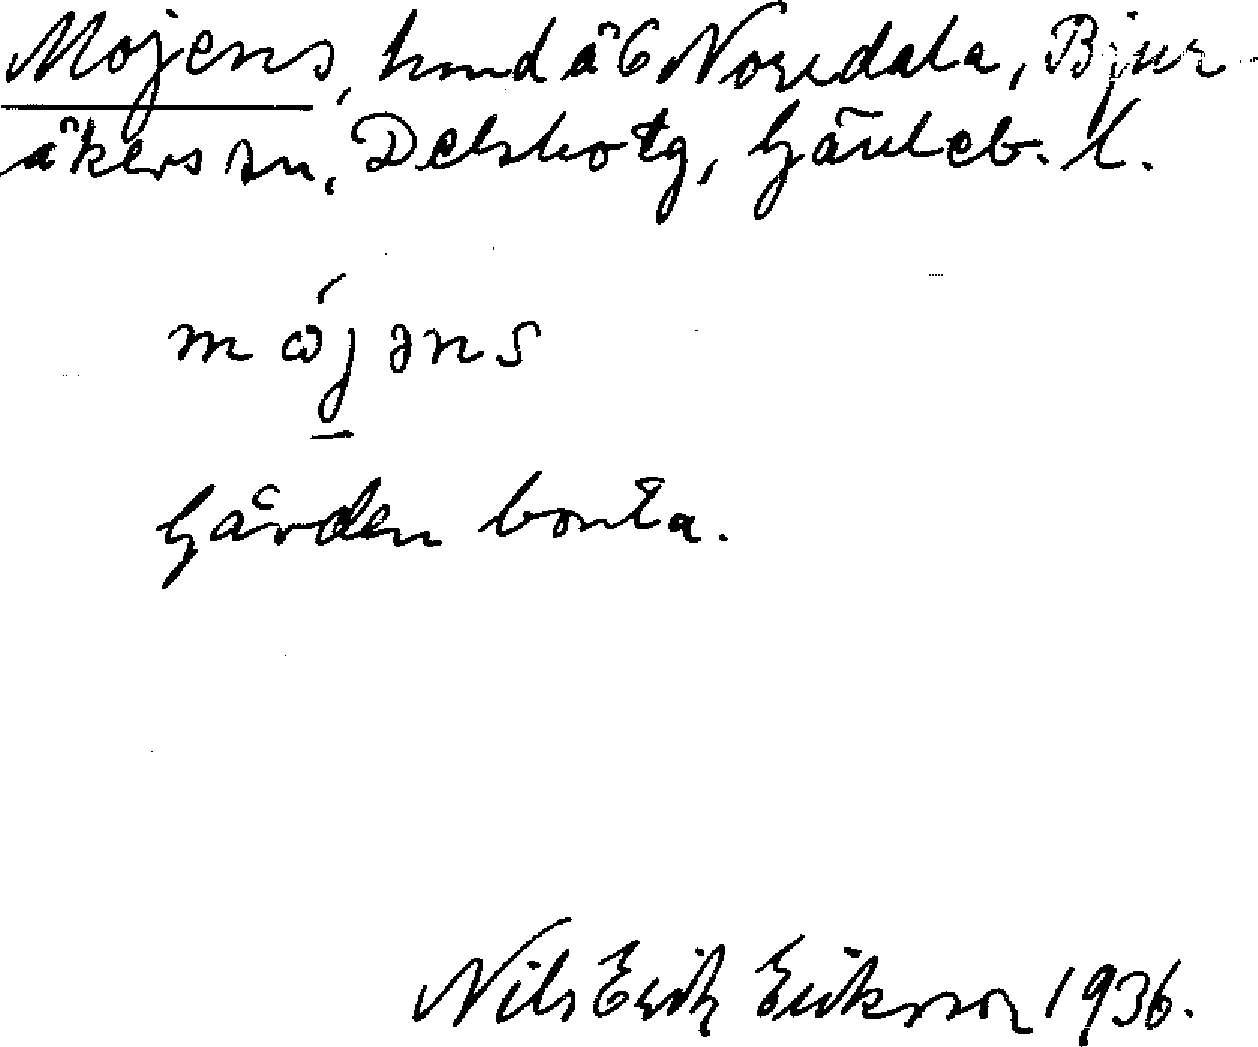 Mojens, hmd å 6 Norrdala, Bjur-
åkers sn, Delsbo tg, Gävleb. l.
mójəns
Gården borta.
Nils Erik Eriksson 1936.